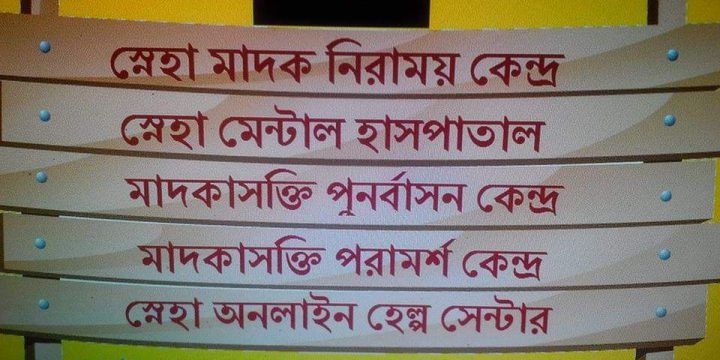 স্নেহা মাদক নিরাময় কেন্দ্র
স্নেহা মেন্টাল হাসপাতাল
মাদকাসক্তি পুনর্বাসন কেন্দ্র
মাদকাসক্তি পরামর্শ কেন্দ্র
স্নেহা অনলাইন হেল্প সেন্টার